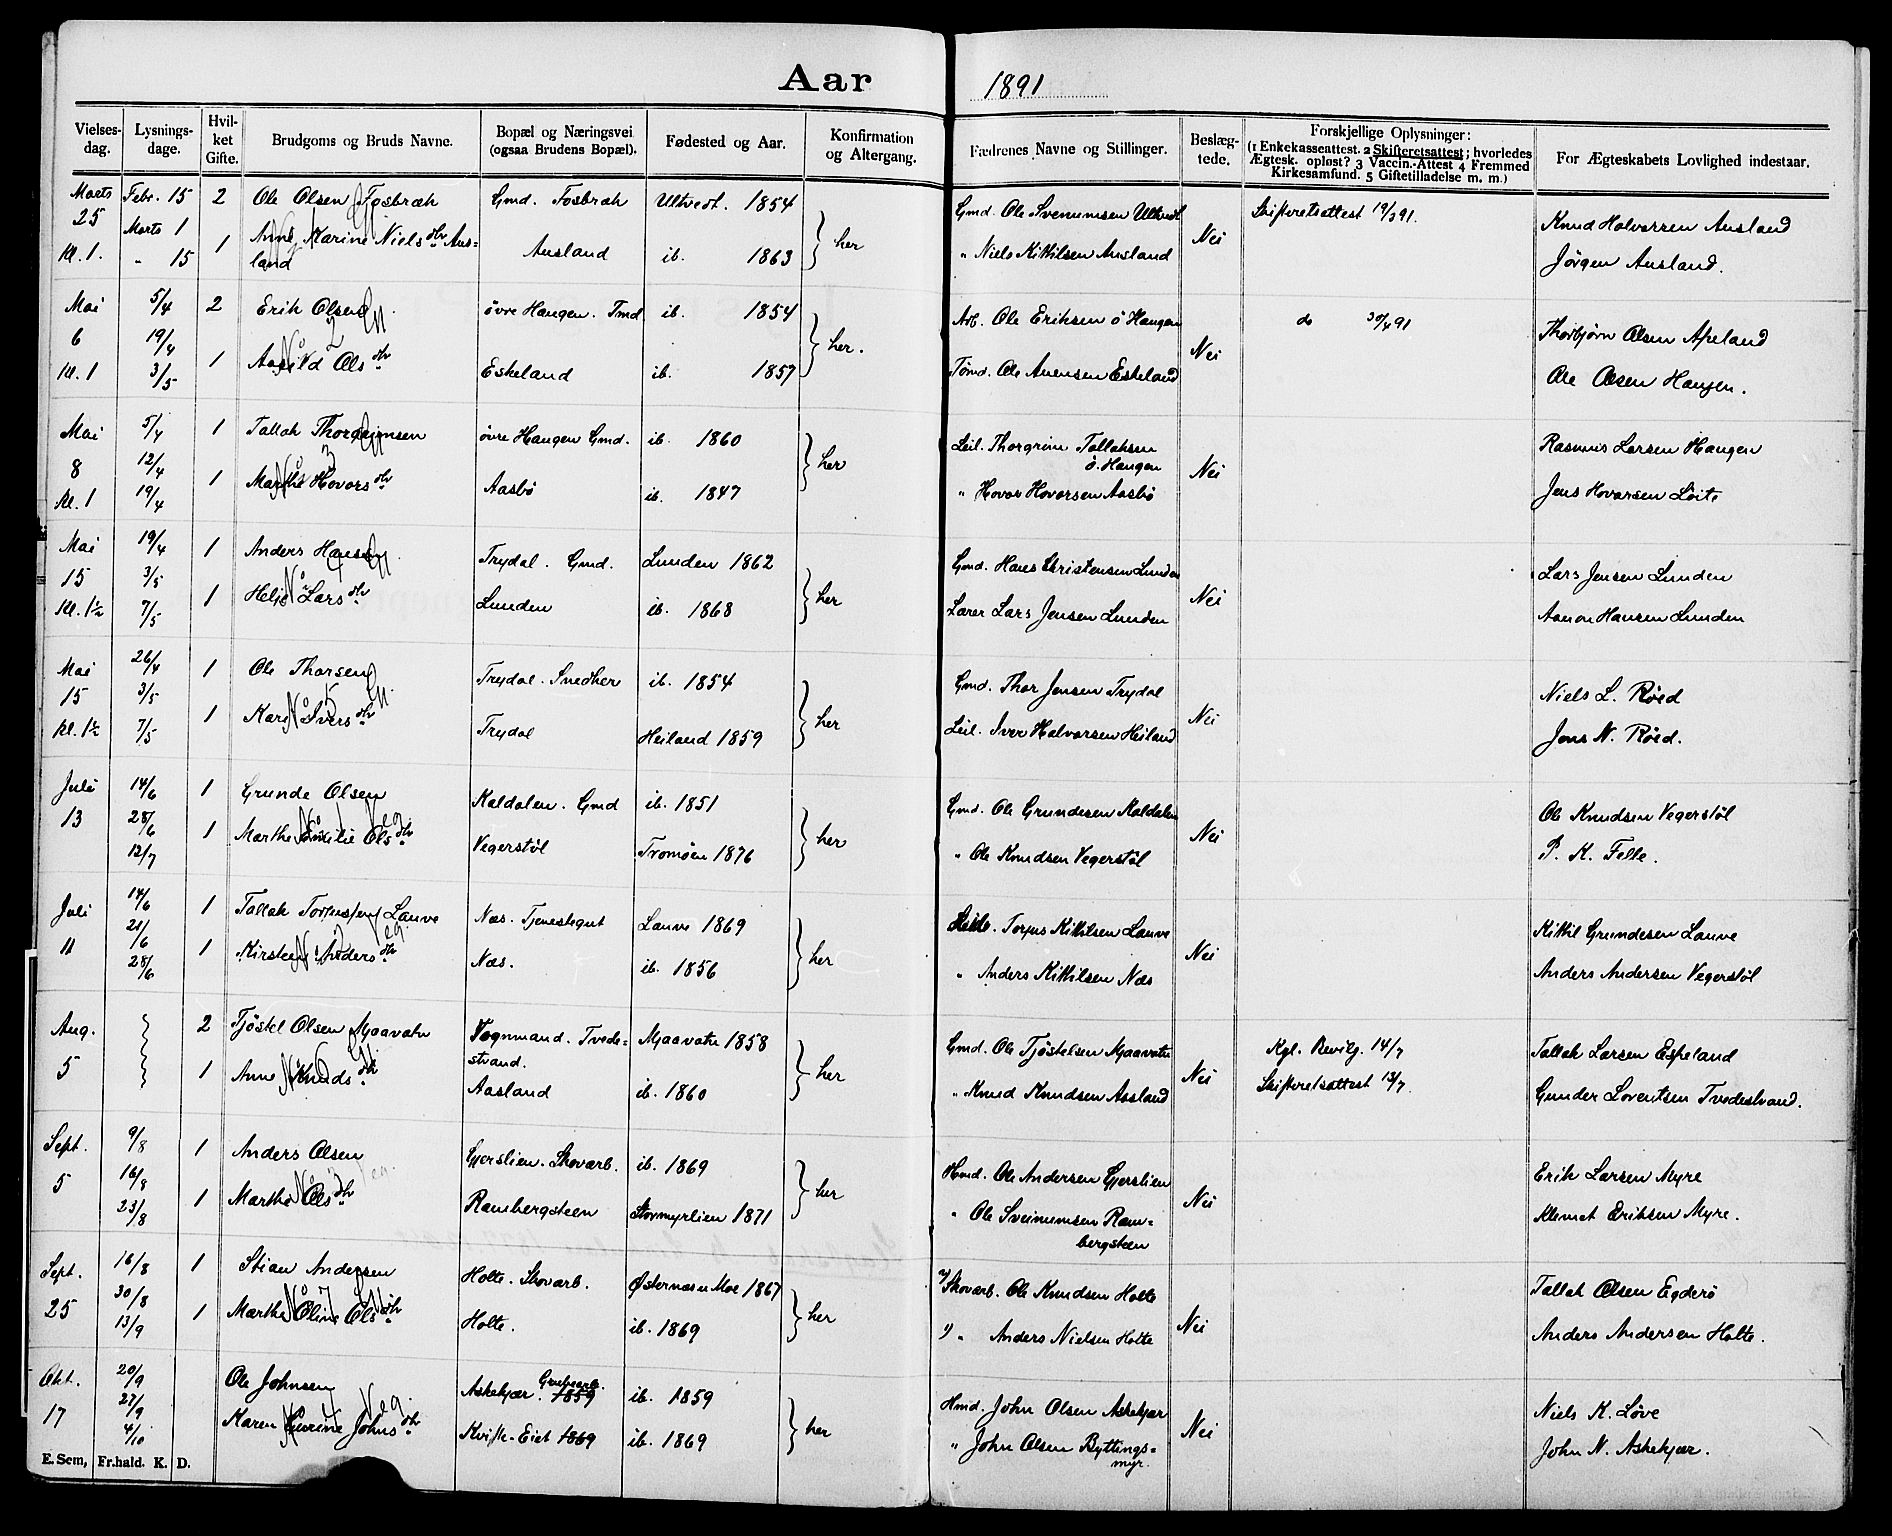 Aar 1891
Vielses-dag. Lysnings-dage. Hvil-ket Gifte. Brudgoms og Bruds Navne. Bopæl og Næringsvei (ogsaa Brudens Bopæl). Fødested og Aar. Konfirmation og Altergang. Fædrenes Navne og Stillinger. Beslæg-tede. Forskjellige Oplysninger: (1 Enkekasseattest. 2 Skifteretsattest; hvorledes Ægtesk. opløst? 3 Vaccin.-Attest 4 Fremmed Kirkesamfund. 5 Giftetilladelse m. m.) For Ægteskabets Lovlighed indestaar.
Marts Febr. 15 2 Ole Olsen Fosbræk Gmd. Fosbræk Ultvedt. 1854 Gmd. Ole Svenumsen Ultvedt Skifteretsattest 19/3 91. Knud Halvorsen Ausland
25 Marts 1 her Nei
Kl. 1. " 15 1 Anne Karine Nielsdtr Aus= Ausland ib. 1863 " Niels Kittilsen Ausland Jörgen Ausland.
land
Mai 5/4 2 Erik Olsen övre Haugen. Tmd ib. 1854 Arb. Ole Eriksen ö Haugen do 30/4 91 Thorbjørn Olsen Apeland
6 19/4 her. Nei
Kl. 1 3/5 1 Aasild Olsdtr Eskeland ib. 1857 Tømd. Ole Auensen Eskeland Ole Olsen Haugen.
Mai 5/4 1 Tallak Thorgrimsen övre Haugen Gmd. ib. 1860 Leil. Thorgrim Tallaksen Rasmus Larsen Haugen
ö. Haugen
8 12/4 her Nei
Kl. 1 19/4 1 Marthe Hovorsdtr Aasbö ib. 1847 " Hovor Hovorsen Aasbö Jens Hovarsen Löite
Mai 19/4 1 Anders Hansen Trydal. Gmd. Lunden 1862 Gmd. Hans Christensen Lunden Lars Jensen Lunden
15 3/5 her Nei
Kl. 1½ 7/5 1 Helje Larsdtr Lunden ib. 1868 Lærer Lars Jensen Lunden Aanon Hansen Lunden
Mai 26/4 1 Ole Thorsen Trydal. Snedker ib. 1854 Gmd. Thor Jensen Trydal Niels L. Röed
15 3/5 her Nei
kl. 1½ 7/5 1 Kari Iversdtr Trydal Heiland 1859 Leil. Iver Halvorsen Heiland Jens N. Röed.
Juli 14/6 1 Grunde Olsen Kaldalen. Gmd ib. 1851 Gmd. Ole Grundesen Kaldalen Ole Knudsen Vegerstöl
13 28/6 her Nei
12/7 1 Marthe Emilie Olsdtr Vegerstöl Tromöen 1876 " Ole Knudsen Vegerstöl P. K. Felle.
Juli 14/6 1 Tallak Torjussen Lauve Næs. Tjenestegut Lauve 1869 Leil. Torjus Kittilsen Lauve Kittil Grundesen Lauve
11 21/6 her Nei
28/6 1 Kirsten Andersdtr Næs. ib. 1856 " Anders Kittilsen Næs Anders Andersen Vegerstöl
Aug. 2 Tjöstel Olsen Mjaavatn Vognmand. Tvede= Mjaavatn 1858 Gmd. Ole Tjöstelsen Mjaavatn Kgl. Bevilg. 14/7 Tallak Larsen Espeland
strand.
5 1 Anne Knudsdtr Aasland ib. 1860 her " Knud Knudsen Aasland Nei Skifteretsattest 13/7. Gunder Lorentsen Tvedestrand.
Sept. 9/8 1 Anders Olsen Gjerslien. Skovarb. ib. 1869 Hmd. Ole Andersen Gjerslien Erik Larsen Myre
5 16/8 her Nei
23/8 1 Marthe Olsdtr Rambergsteen Stormyrlien 1871 " Ole Sveinumsen Ram= Klemet Eriksen Myre.
bergsteen
Sept. 16/8 1 Stian Andersen Holte. Skovarb. Østernæs u Moe 1867 2) Skovarb. Ole Knudsen Holte Tallak Olsen Egderö
25 30/8 her Nei
13/9 1 Marthe Oline Olsdtr Holte. ib. 1869 1) " Anders Nielsen Holte Anders Andersen Holte.
Okt. 20/9 Ole Johnsen Askekjær. Grubearb. 1859 ib. 1859 Hmd. John Olsen Askekjær Niels K. Löve
17 27/9 her Nei
4/10 Karen Johnsdtr Kvifte-Eiet 1869 ib. 1869 " John Olsen Byttings= John N. Askekjær.
myr.
E. Sem, Fr.hald. K. D.